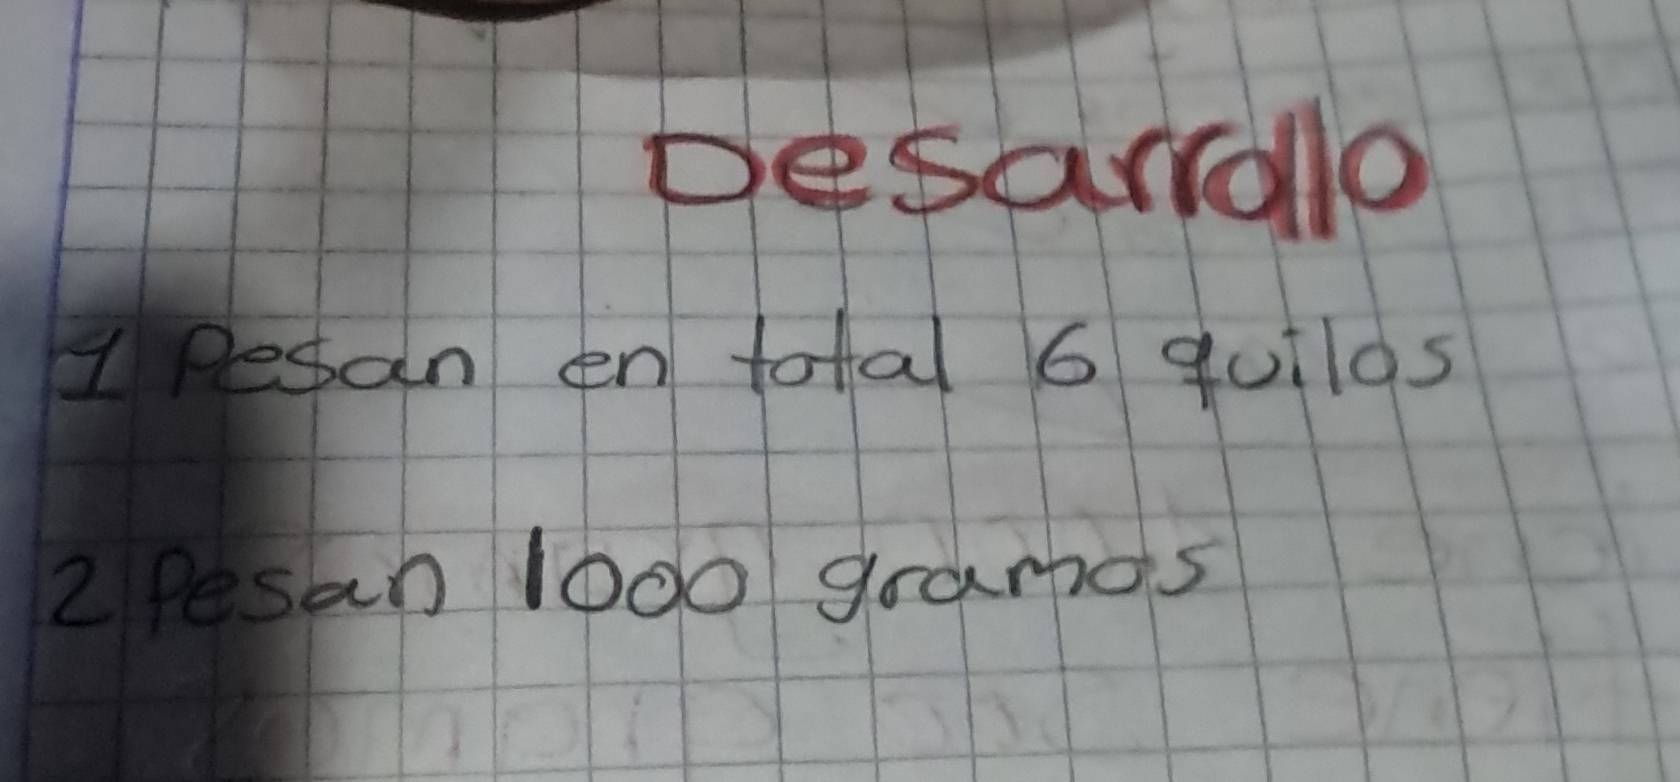 Desarrollo
1 Pesan en total 6 quilos
2 Pesan 1000 gramos